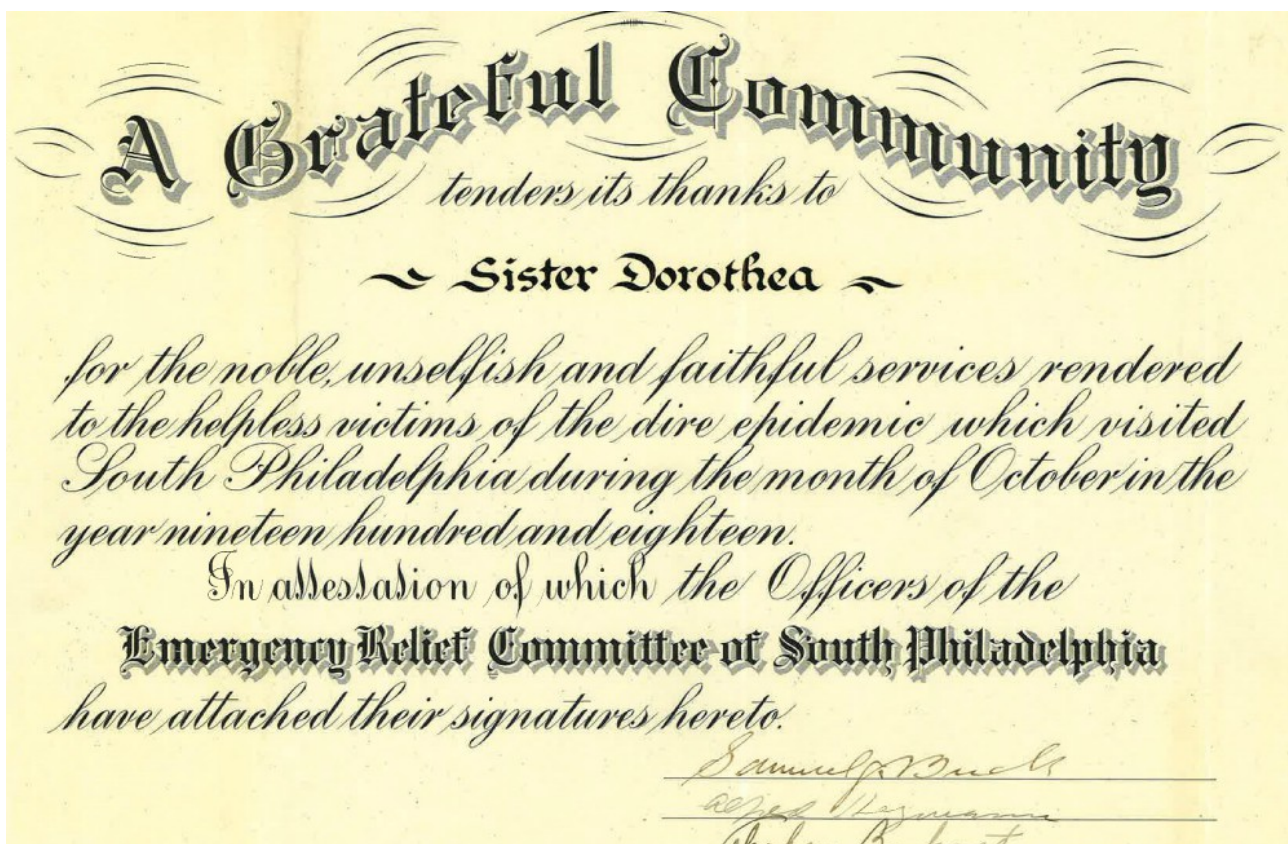 A Grateful Community
tenders its thanks to
~ Sister Dorothea ~
for the noble, unselfish and faithful services rendered
to the helpless victims of the dire epidemic which visited
South Philadelphia during the month of October in the
year nineteen hundred and eighteen.
In attestation of which the Officers of the
Emergency Relief Committee of South Philadelphia
have attached their signatures hereto.
Samuel J. Buck
Alfred